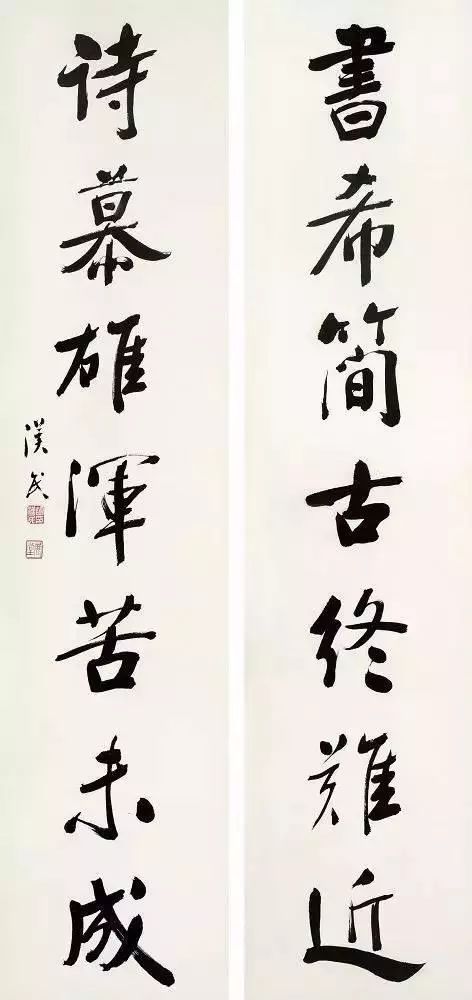 書希簡古終難近
詩慕雄渾苦未成
漢民